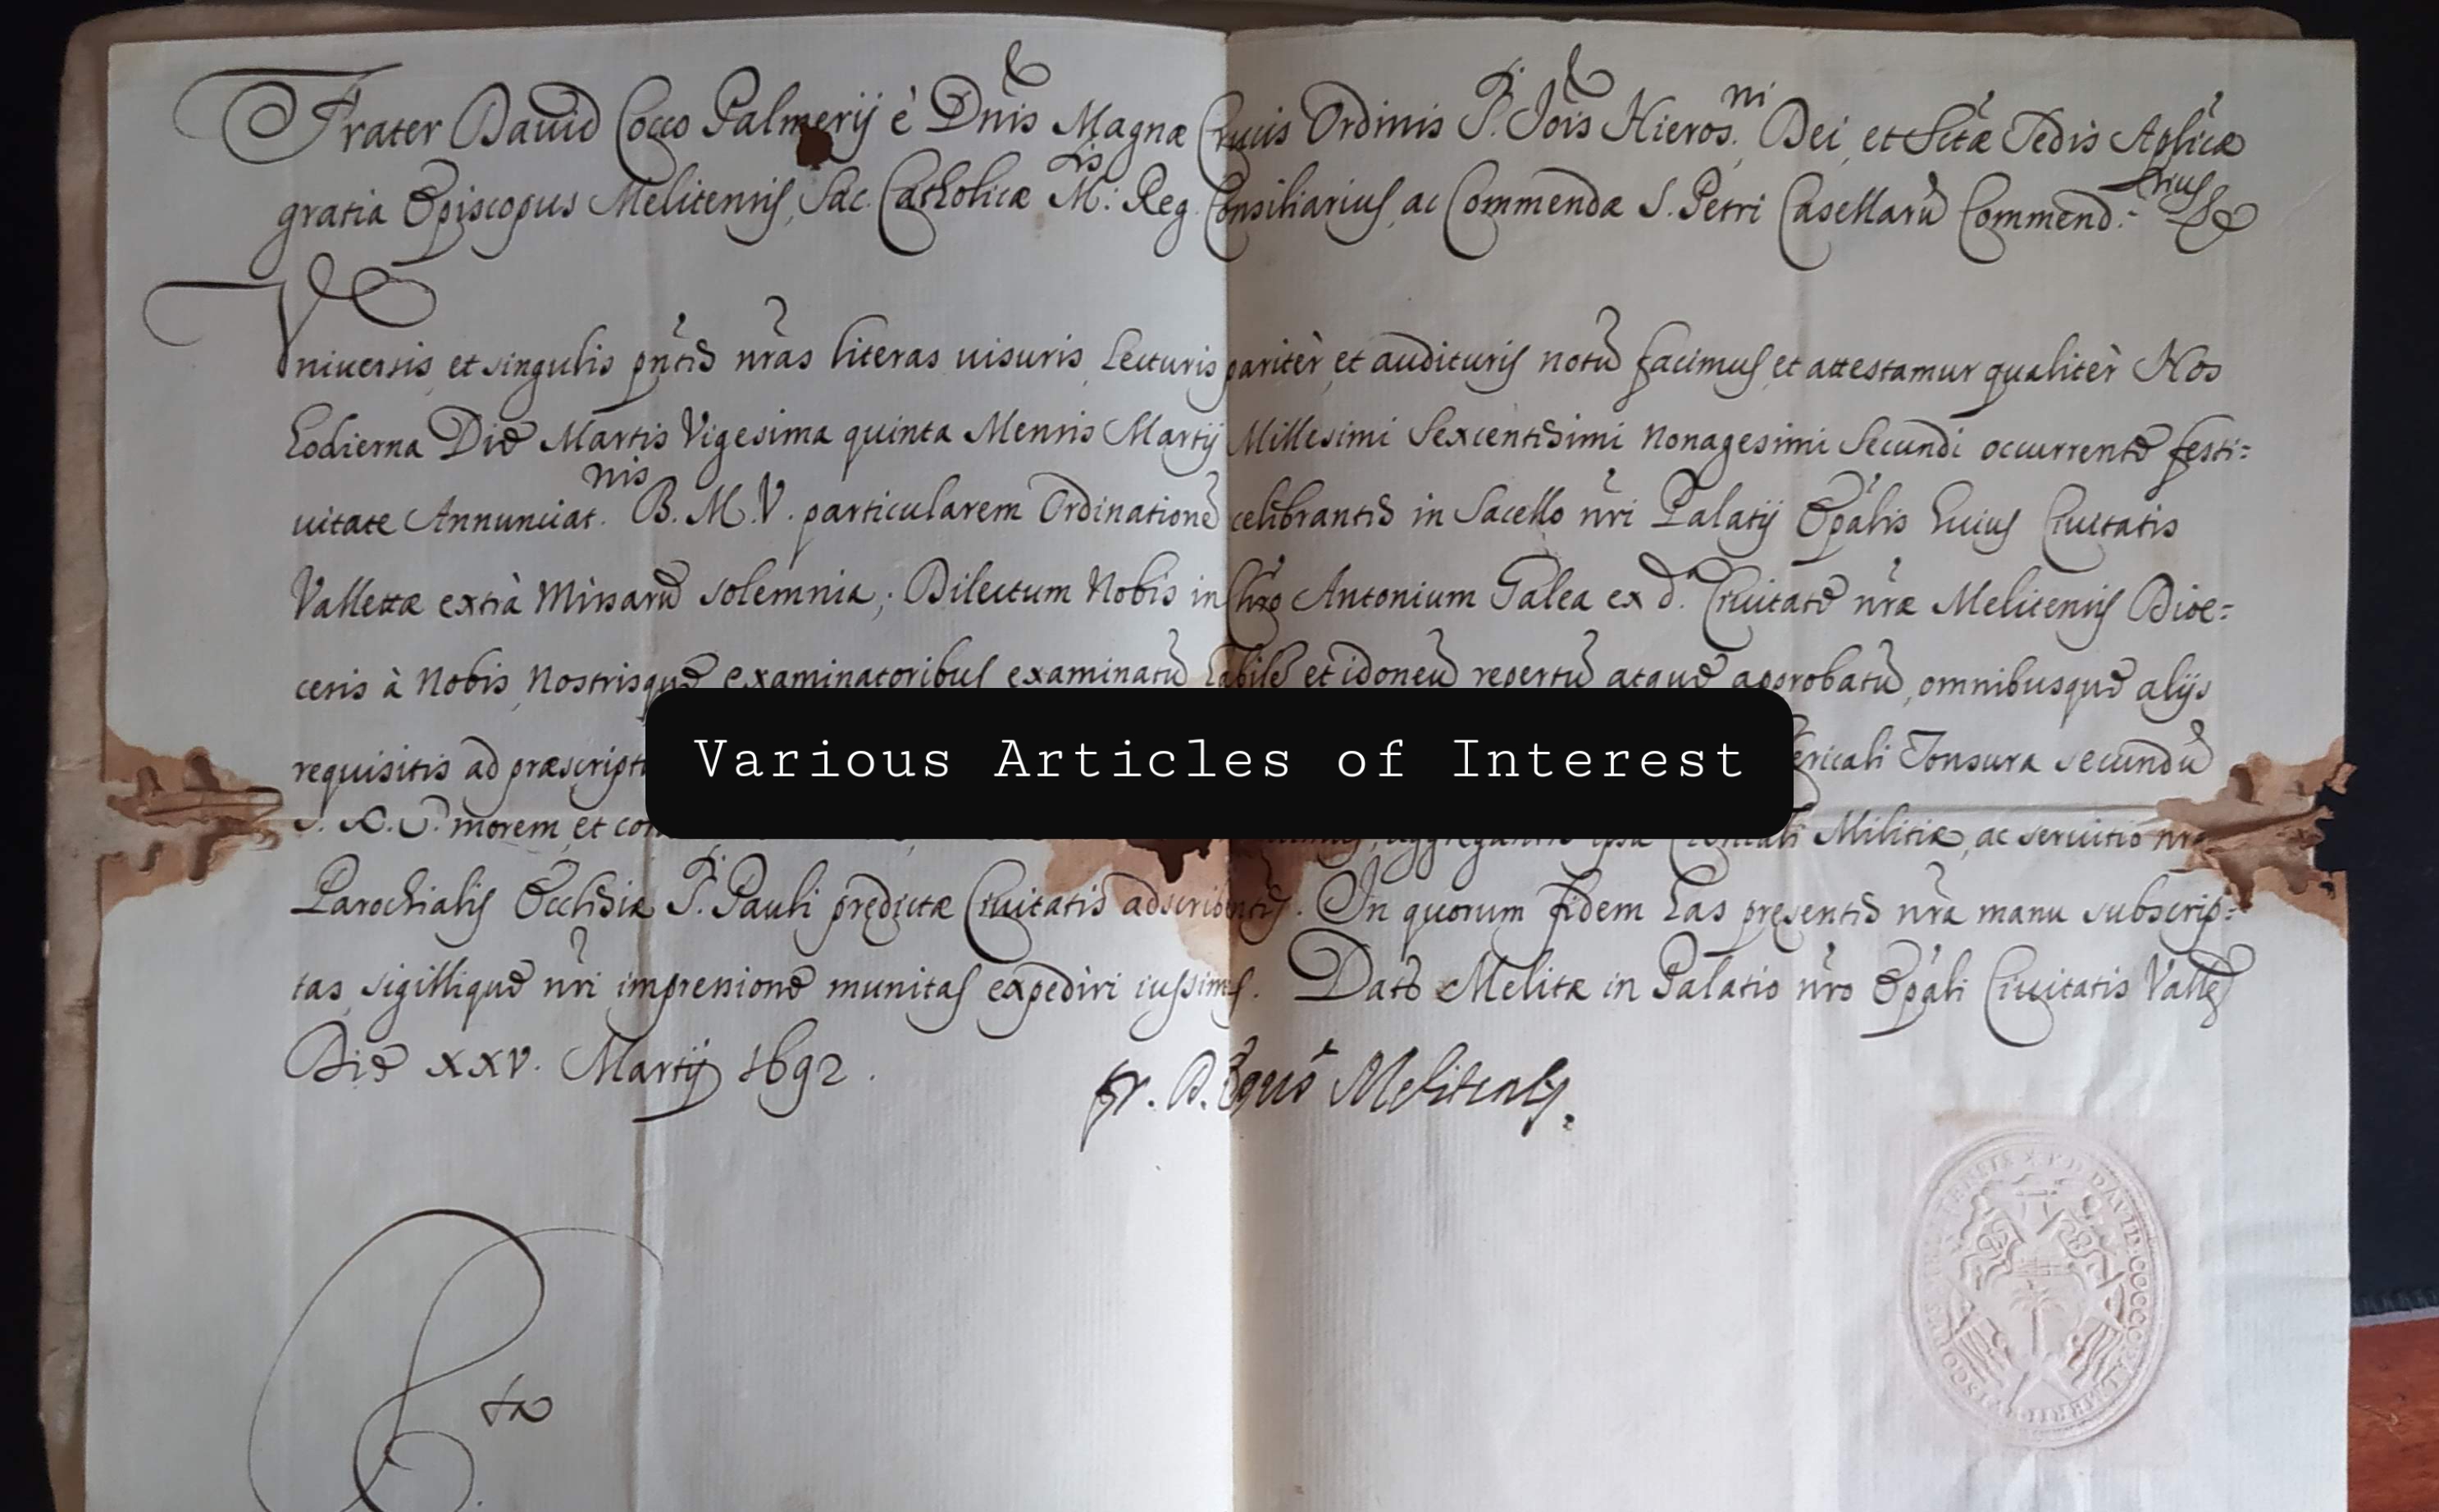 Frater Dauid Cocco Palmerij è Dnis Magnæ Crucis Ordinis S. Jois Hieros.ni Dei, et Sctæ Sedis Aplicæ
gratia Episcopus Melitensis, Sac. Catholicæ M.tis Reg. Consiliarius, ac Commendæ S. Petri Casellarũ Commend.rius &
Vniuersis et singulis pñtes nras literas uisuris, lecturis pariter, et audituris notũ facimus, et attestamur qualitèr Nos
hodierna Die Martis Vigesima quinta Mensis Martij Millesimi Sexcentesimi Nonagesimi Secundi occurrente festi=
uitate Annunciat.nis B. M. V. particularem Ordinatione celebrantes in Sacello nri Palatij Epalis huius Ciuitatis
Vallettæ extrà Missarũ solemnia; Dilectum Nobis in Chro Antonium Galea ex d.a Ciuitate nræ Melitensis Dioe=
cesis à Nobis, Nostrisque examinatoribus examinatũ habile et idoneũ repertũ atque approbatũ, omnibusque alijs
requisitis ad præscript
Various Articles of Interest
ericali Tonsura secundũ
morem, et con
aggregantes Militiæ, ac seruitio nræ
Parochialis Ecclesiæ S. Pauli prędictæ Ciuitatis adscribentes. In quorum fidem has pręsentes nra manu subscrip=
tas, sigillique nri impressione munitas expediri iussimus. Dat. Melitæ in Palatio nro Epali Ciuitatis Valle
Die XXV. Martij 1692.
fr. D. Epus Melitensis.